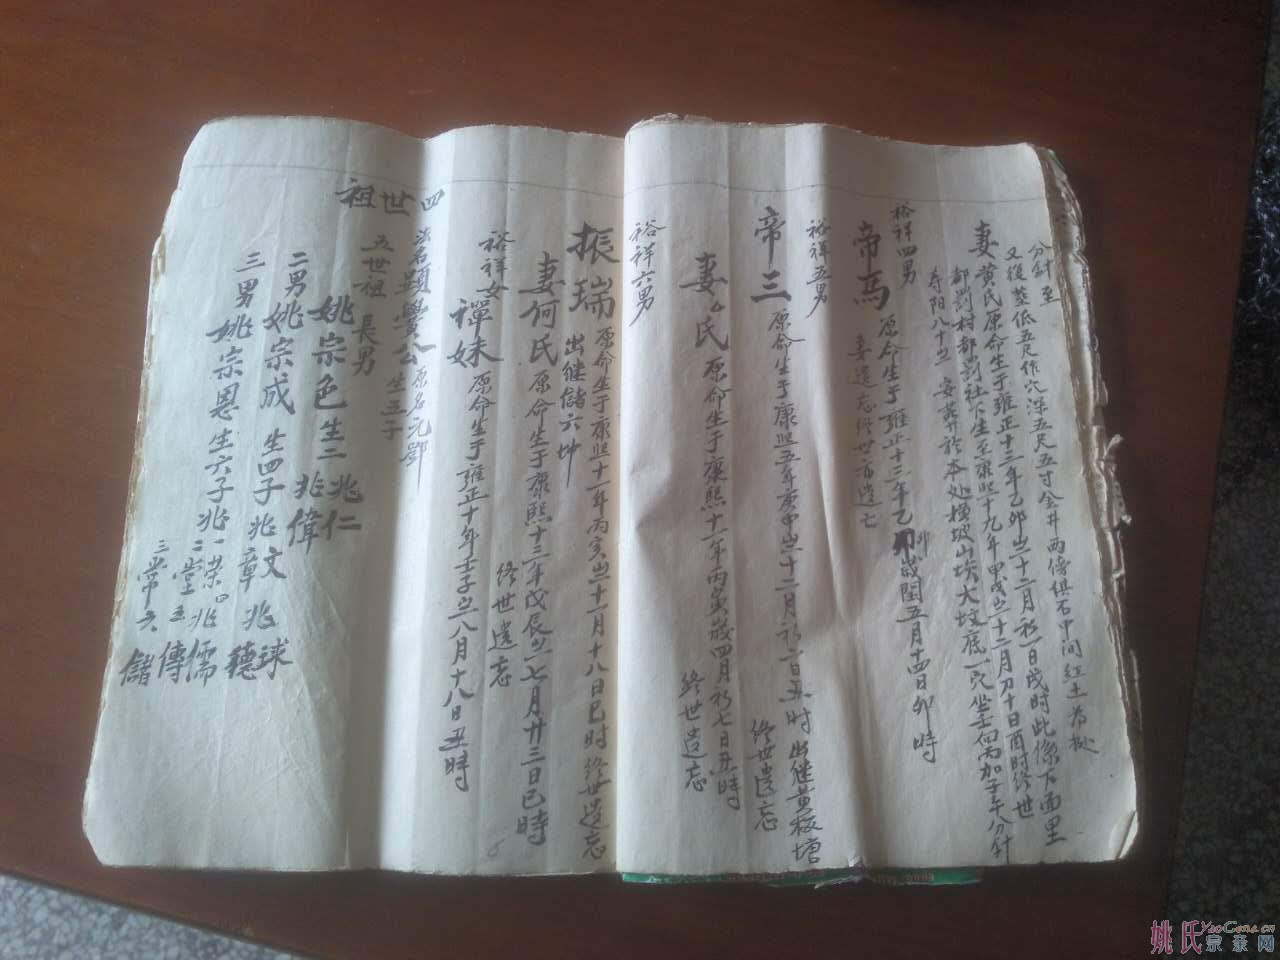 分針至
又後塟低五尺作穴深五尺五寸金井兩傍俱石中间红土為挞
妻黄氏原命生于雍正十三年乙卯岁十二月初一日戌時此係下面里
都罰村都罰社下生至康熙十九年甲戌岁十二月初十日酉时终世
寿阳八十岁 安葬於本处横坡山埃大坟底一穴坐壬向丙加子午分針
裕祥四男
帝馬 原命生于雍正十三年乙卯歲閏五月十四日卯時
妻遗忘终世亦遗亡
裕祥五男
帝三 原命生于康熙五年庚申岁十二月初一日丑时 出继黄板塘
终世遗忘
妻氏 原命生于康熙十一年丙寅歲四月初七日丑時
終世遗忘
裕祥六男
振瑞 原命生于康熙十一年丙寅岁十一月十八日巳时终世遗忘
出继儲六
妻何氏 原命生于康熙十三年戊辰岁七月廿三日巳時
終世遺忘
裕祥女
禪妹 原命生于雍正十年壬子岁八月十八日丑時
四世祖
法名題學公 原名元鄧
生三子
五世祖 長男
姚宗色生二 兆仁 兆偉
二男姚宗成 生四子兆文 兆章 兆球 兆穗
三男姚宗恩生六子兆一荣 二堂 三常 四儒 五傳 六儲
姚氏宗亲网
YaoGens.cn